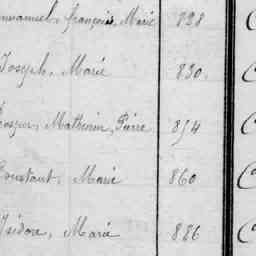 Emmanuel, françois, Marie 828
Joseph, Marie 830
Prosper, Mathurin, Pierre 854
Constant, Marie 860
Isidore, Marie 886